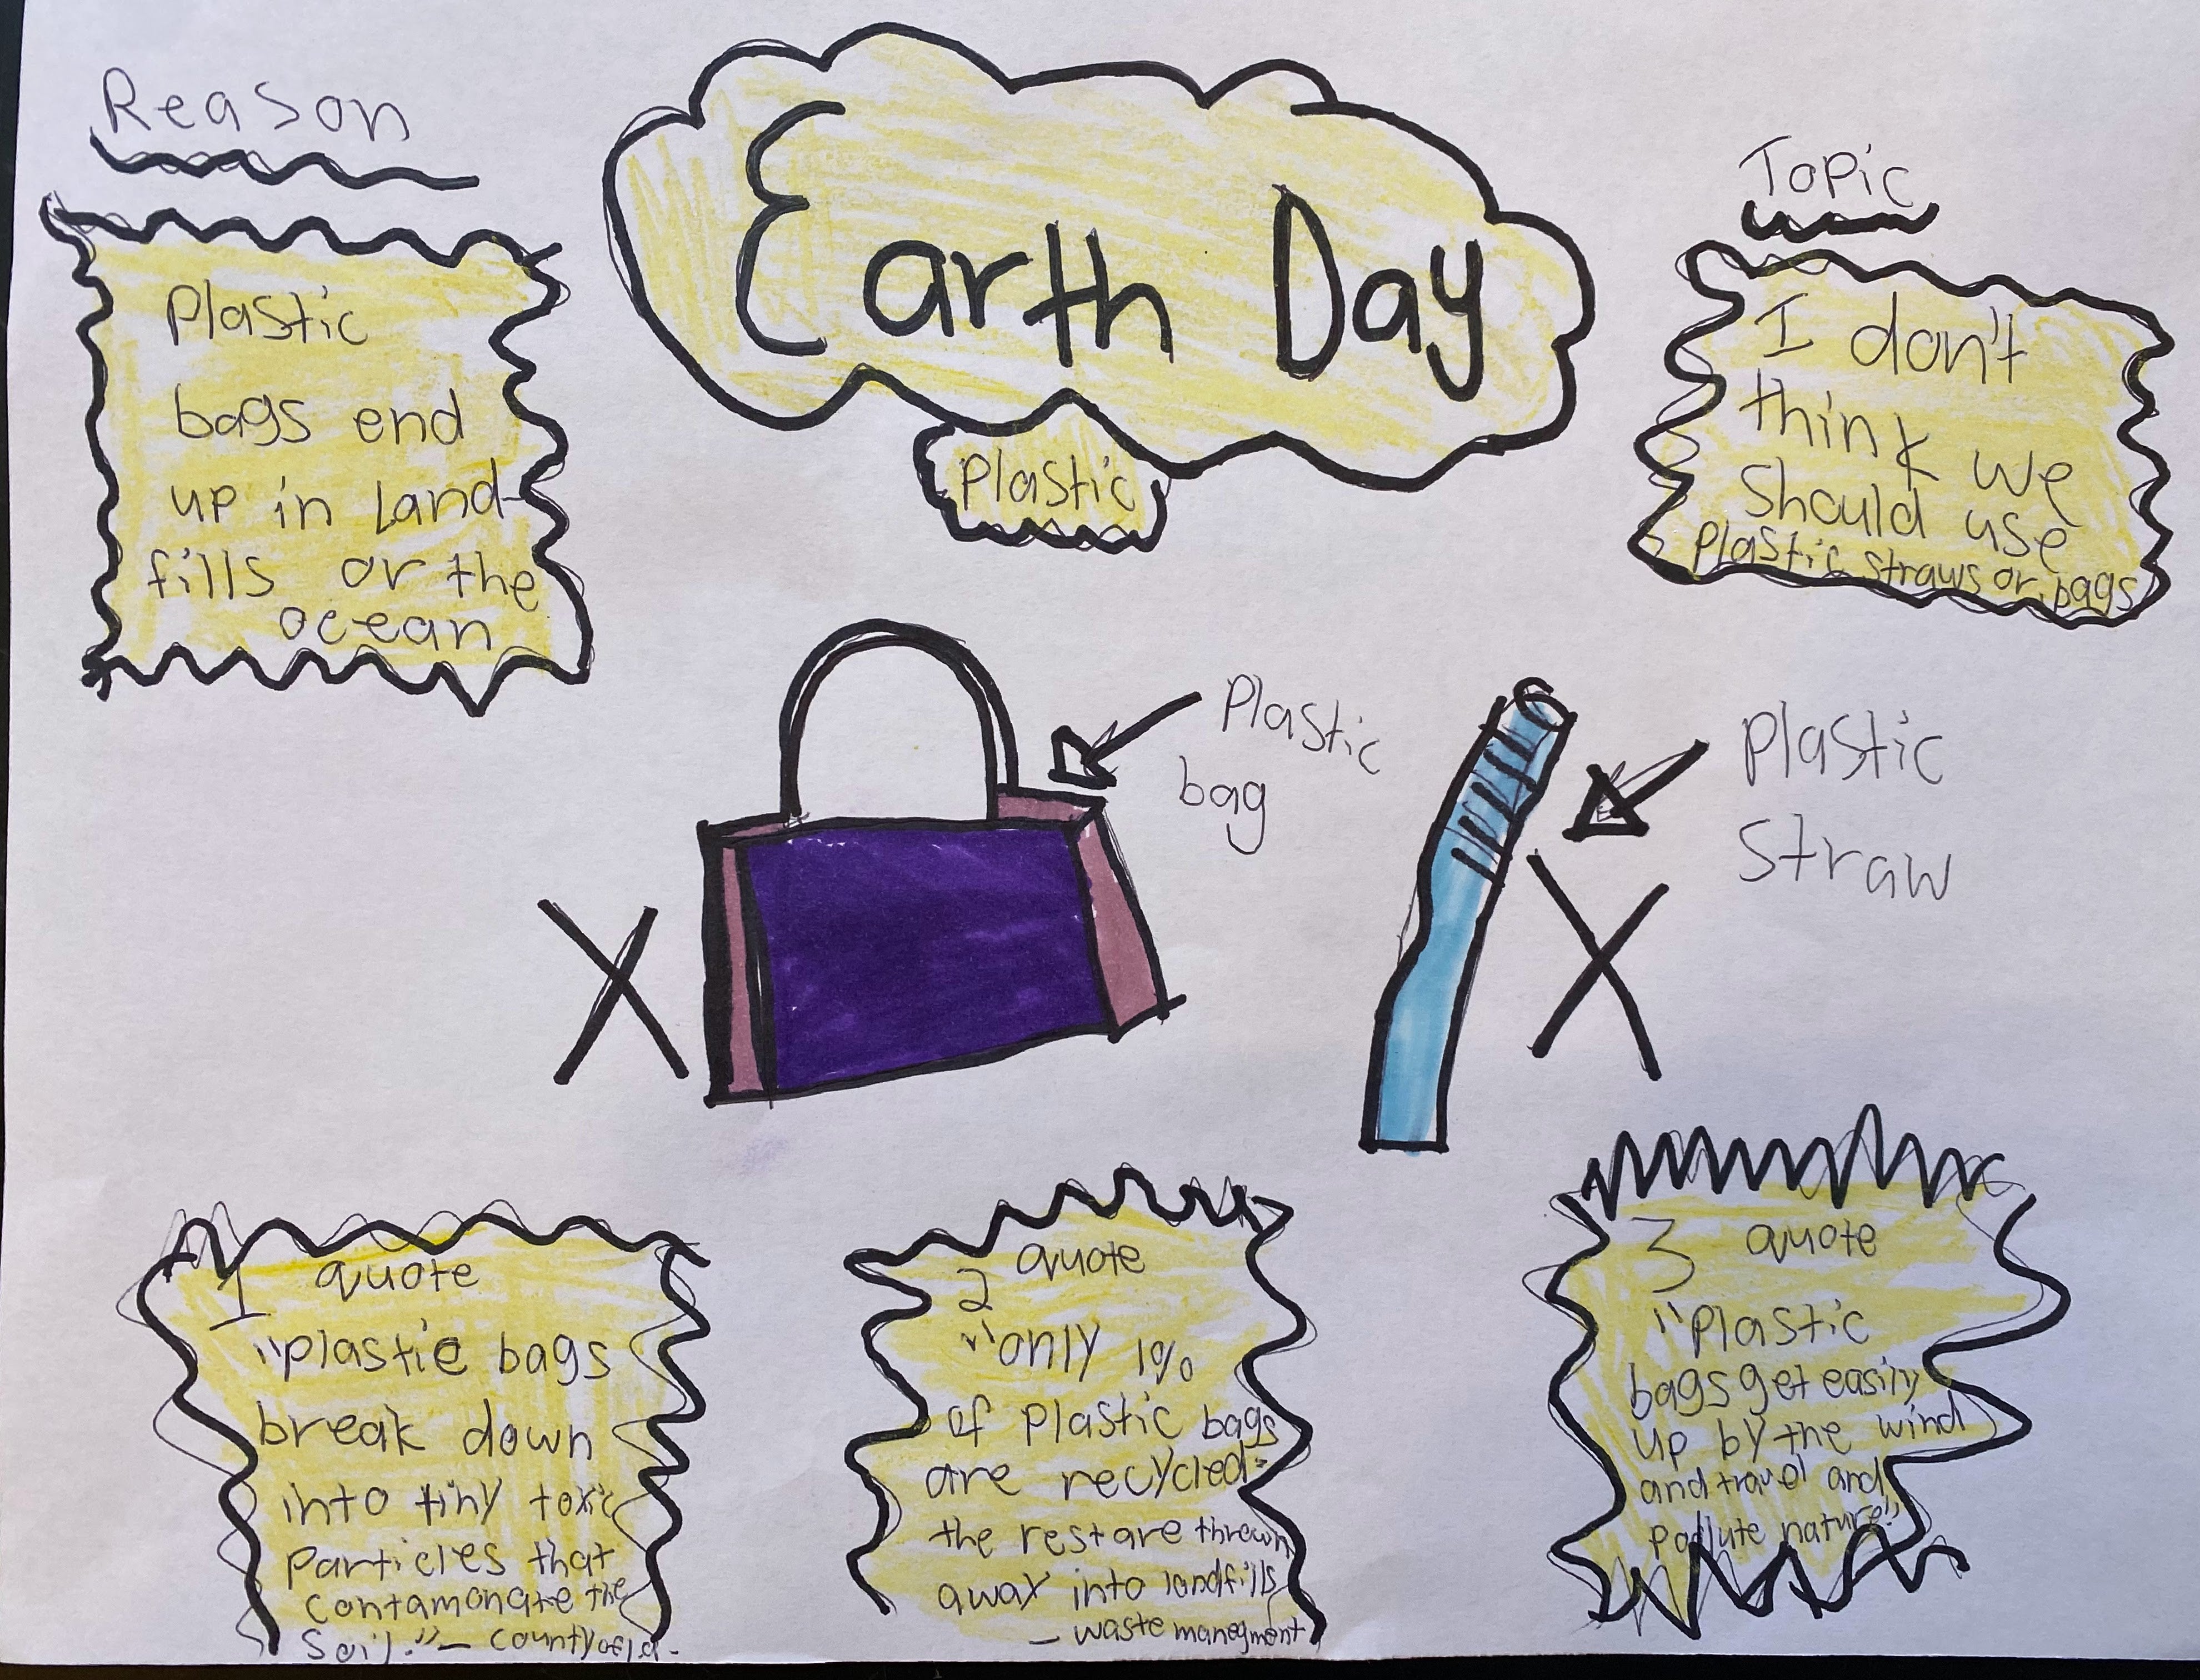 Reason
Plastic
bags end
up in Land-
fills or the
ocean
Earth Day
Plastic
Topic
I don't
think we
should use
plastic straws or bags
Plastic
bag
Plastic
Straw
X
X
1 quote
"plastic bags
break down
into tiny toxic
particles that
contamonate the
Soil." — county of la.
2 quote
"only 1%
of plastic bags
are recycled.
the rest are thrown
away into landfills
— waste managment
3 quote
"Plastic
bags get easily
up by the wind
and travel and
nature."